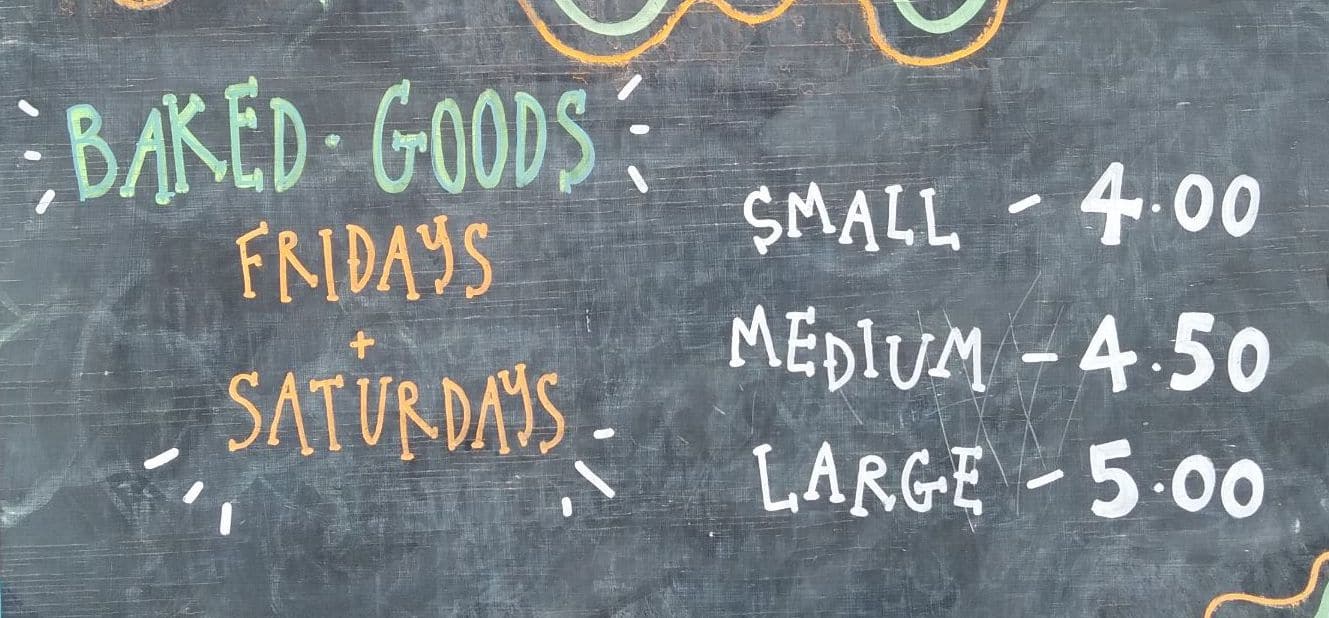 BAKED · GOODS
FRIDAYS
+
SATURDAYS
SMALL - 4.00
MEDIUM - 4.50
LARGE - 5.00